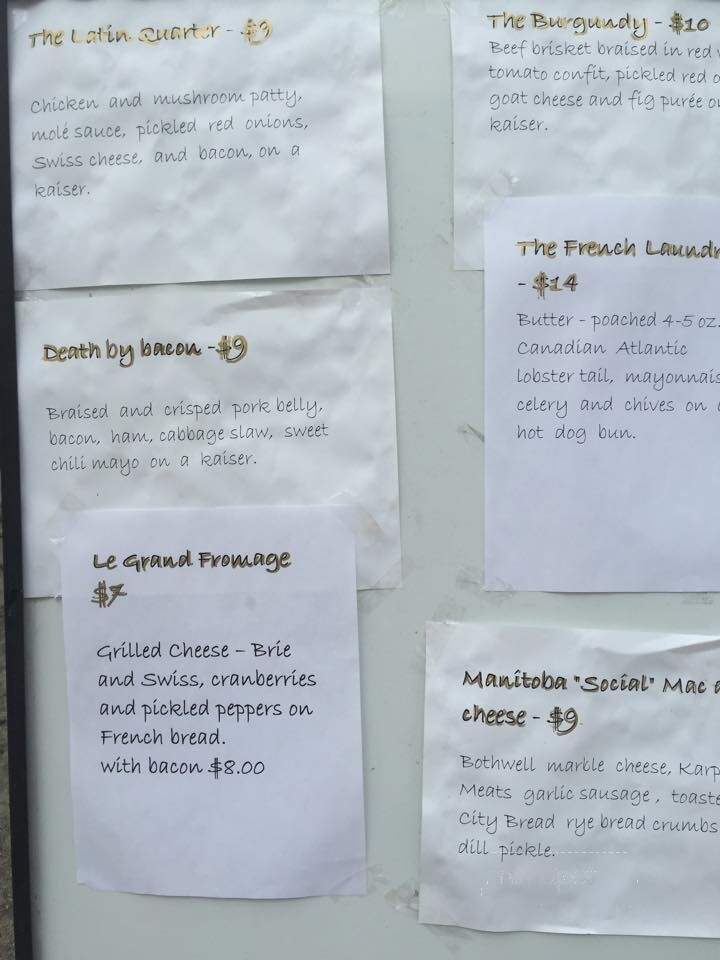 The Latin Quarter - $9
Chicken and mushroom patty,
molé sauce, pickled red onions,
Swiss cheese, and bacon, on a
kaiser.
Death by bacon - $9
Braised and crisped pork belly,
bacon, ham, cabbage slaw, sweet
chili mayo on a kaiser.
Le Grand Fromage
$7
Grilled Cheese - Brie
and Swiss, cranberries
and pickled peppers on
French bread.
with bacon $8.00
The Burgundy - $10
Beef brisket braised in red
tomato confit, pickled red
goat cheese and fig purée
kaiser.
The French
- $14
Butter - poached 4-5 oz.
Canadian Atlantic
lobster tail,
celery and chives on
hot dog bun.
Manitoba "Social" Mac
cheese - $9
Bothwell marble cheese,
Meats garlic sausage,
City Bread rye bread crumbs
dill pickle.